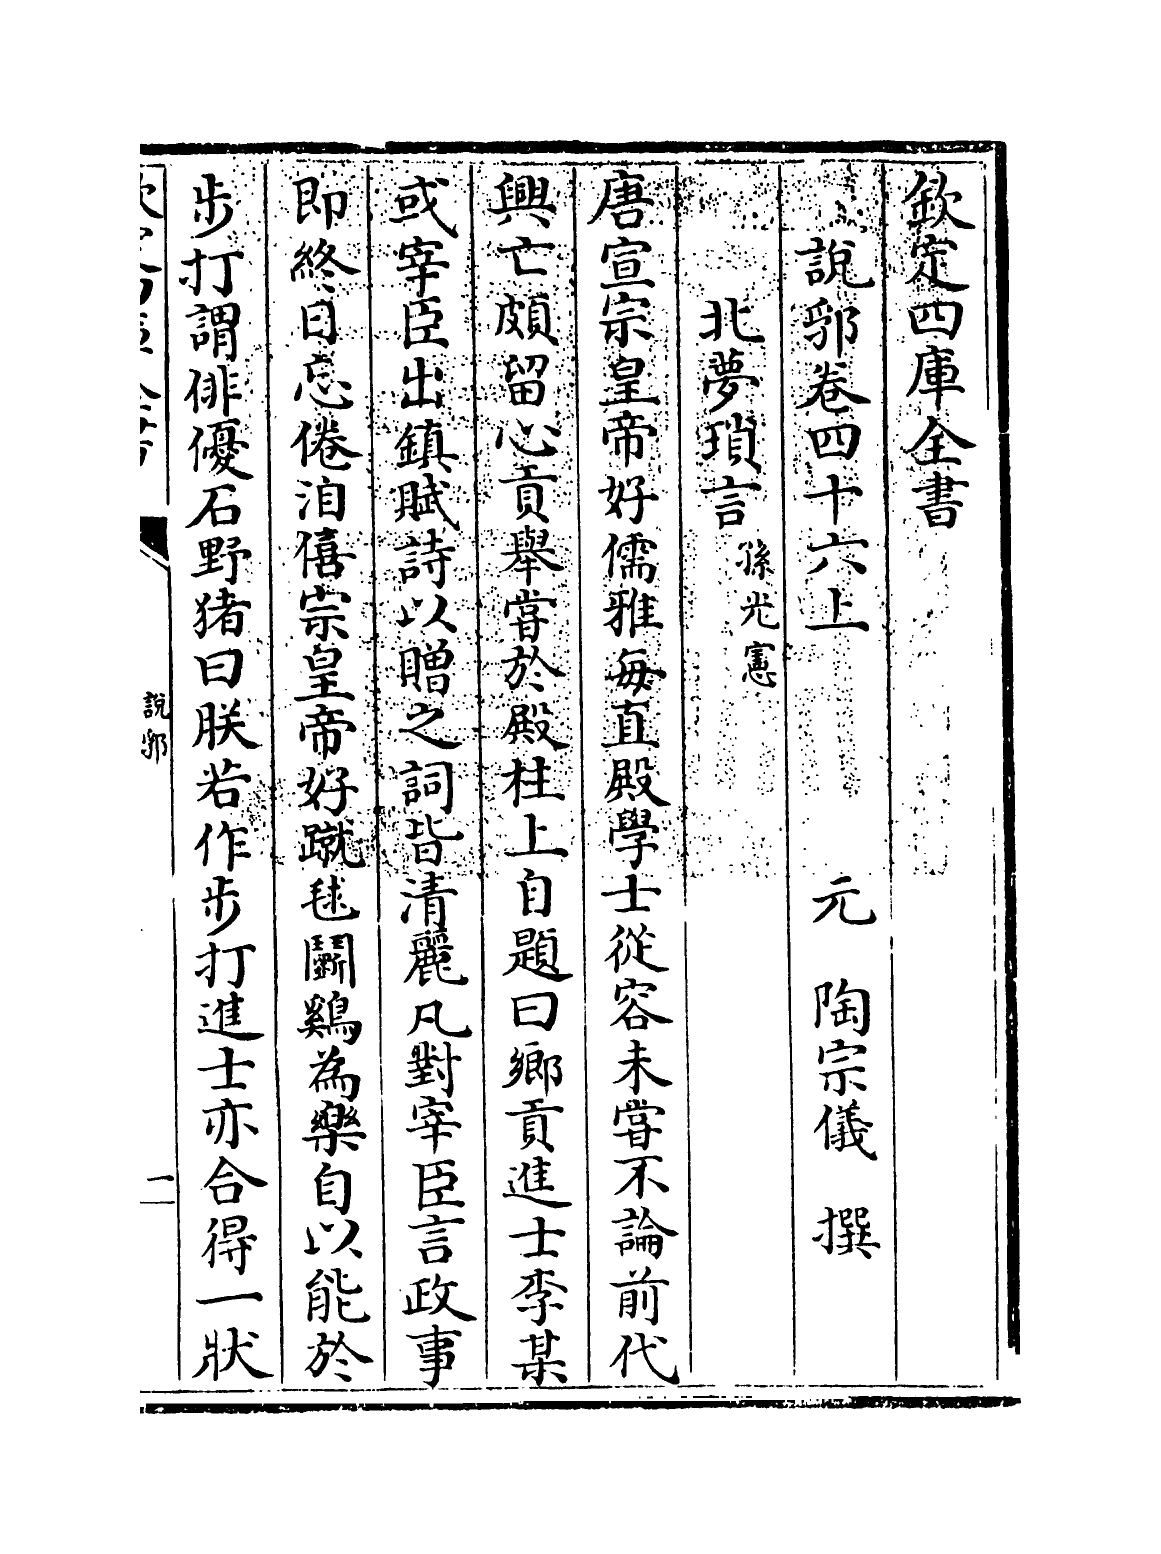 欽定四庫全書
說郛卷四十六上　元　陶宗儀　撰
北夢瑣言孫光憲
唐宣宗皇帝好儒雅每直殿學士從容未甞不論前代
興亡頗留心貢舉甞於殿柱上自題曰鄉貢進士李某
或宰臣出鎮賦詩以贈之詞皆清麗凡對宰臣言政事
即終日忘倦洎僖宗皇帝好蹴毬鬬鷄為樂自以能於
步打謂俳優石野猪曰朕若作步打進士亦合得一狀
說郛